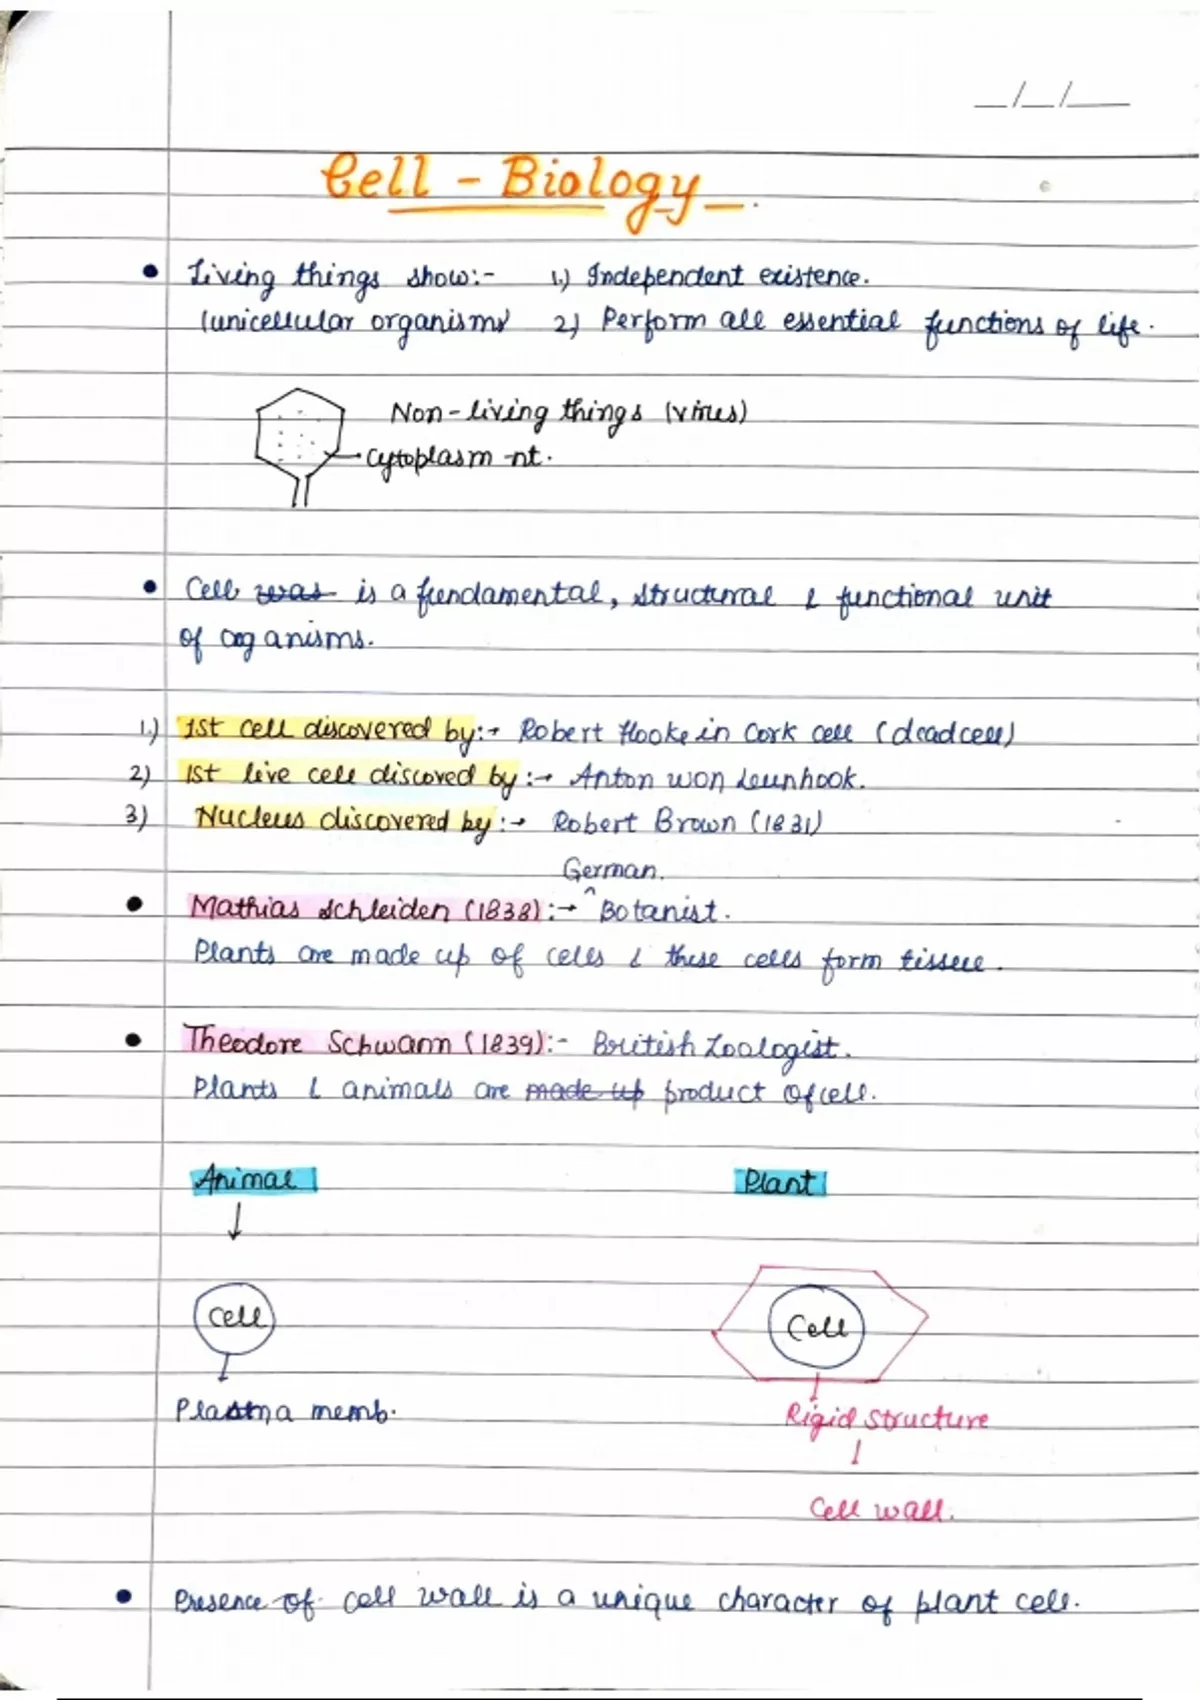 __/__/____
Cell - Biology
• Living things show:- 1.) Independent existence.
(unicellular organisms) 2) Perform all essential functions of life.
Non-living things (virus)
Cytoplasm -nt.
• Cell was is a fundamental, structural & functional unit
of organisms.
1.) 1st cell discovered by:→ Robert Hooke in Cork cell (dead cell)
2) 1st live cell discoved by:→ Anton won Leunhook.
3) Nucleus discovered by:→ Robert Brown (1831)
German.
• Mathias Schleiden (1838):→ ^Botanist.
Plants are made up of cells & these cells form tissue.
• Theodore Schwann (1839):- British Zoologist.
Plants & animals are made up product of cell.
Animal Plant
Cell Cell
Plasma memb. Rigid structure
Cell wall.
• Presence of cell wall is a unique character of plant cell.